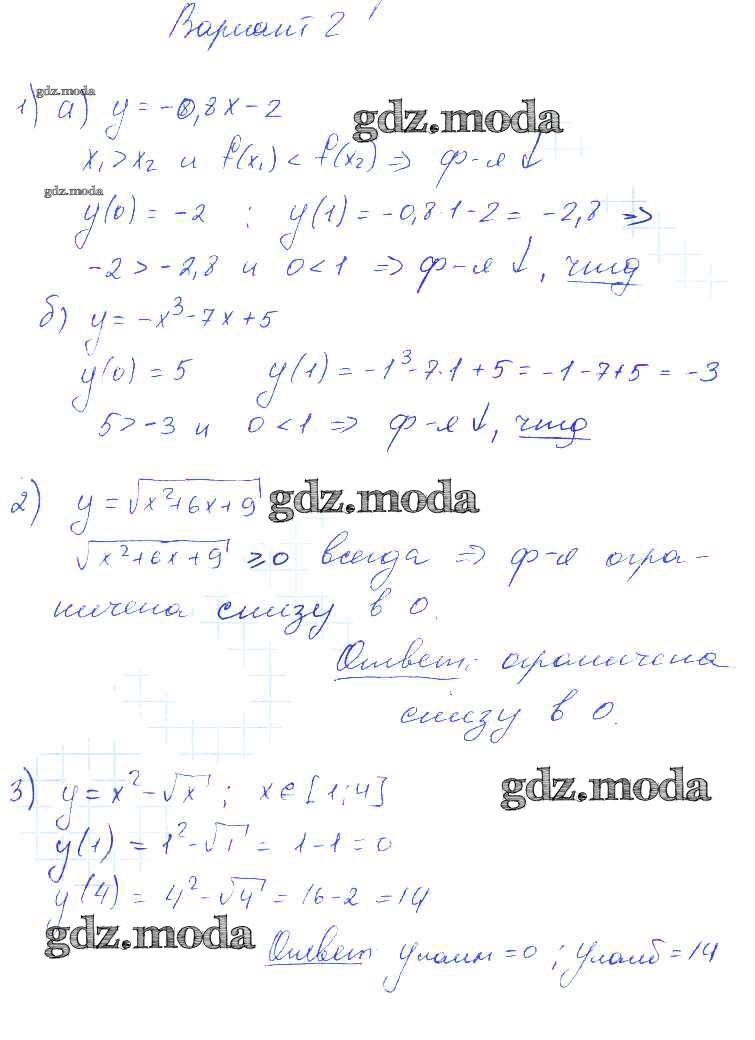 Вариант 2
gdz.moda
1) а) y = -0,8x - 2
gdz.moda
x₁ > x₂ и f(x₁) < f(x₂) ⇒ ф-я ↓
gdz.moda
y(0) = -2 ; y(1) = -0,8·1 - 2 = -2,8 ⇒
-2 > -2,8 и 0 < 1 ⇒ ф-я ↓, чтд
б) y = -x³ - 7x + 5
y(0) = 5 y(1) = -1³ - 7·1 + 5 = -1 - 7 + 5 = -3
5 > -3 и 0 < 1 ⇒ ф-я ↓, чтд
2) y = √(x² + 6x + 9)
gdz.moda
√(x² + 6x + 9) ≥ 0 всегда ⇒ ф-я огра-
ничена снизу в 0.
Ответ: ограничена
снизу в 0.
3) y = x² - √x ; x ∈ [1; 4]
gdz.moda
y(1) = 1² - √1 = 1 - 1 = 0
y(4) = 4² - √4 = 16 - 2 = 14
gdz.moda
Ответ: yнаим = 0 ; yнаиб = 14